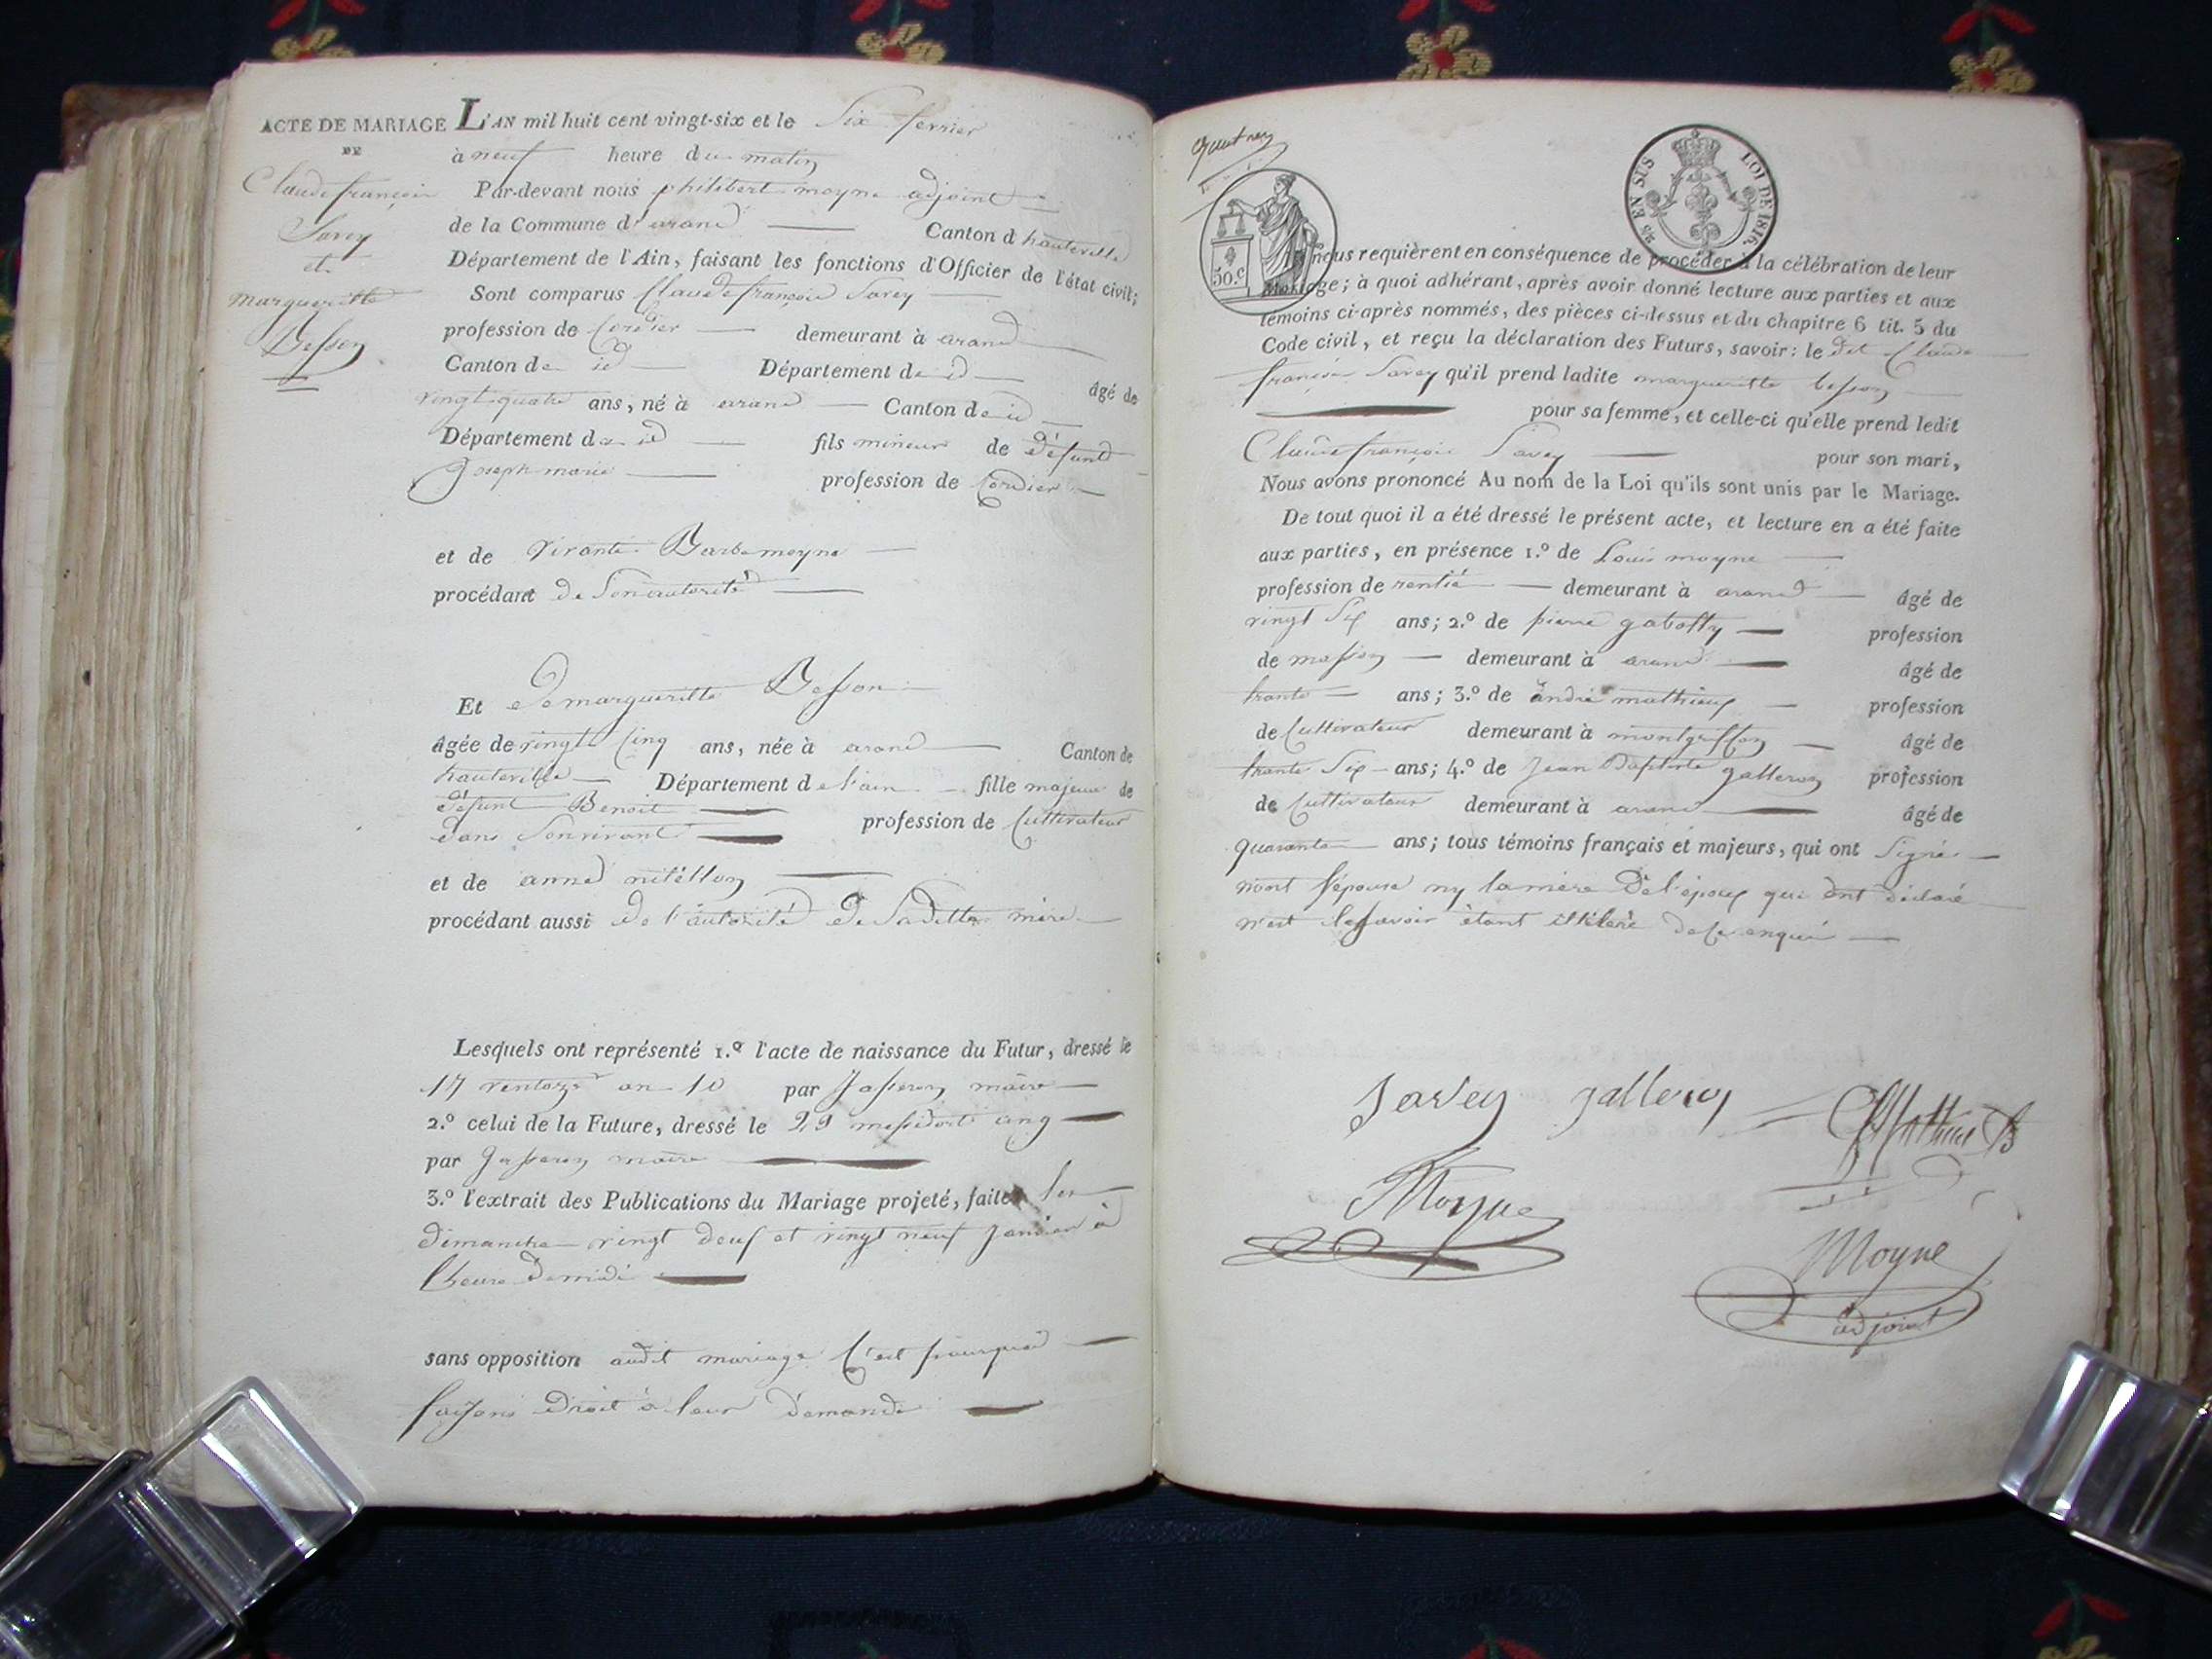 ACTE DE MARIAGE
DE
Claude françois
Savey
et
margueritte
Besson
L'AN mil huit cent vingt-six et le Six fevrier
à neuf heure du matin
Par-devant nous philibert moyne adjoint
de la Commune d'arand Canton d hauteville
Département de l'Ain, faisant les fonctions d'Officier de l'état civil;
Sont comparus Claude françois Savey
profession de Cordier demeurant à arand
Canton de id Département de id âgé de
vingt quatre ans, né à arand Canton de id
Département de id fils mineur de défunt
Joseph marie profession de Cordier
et de vivante Barbe moyne
procédant de Son autorité
Et de margueritte Besson
âgée de vingt Cinq ans, née à arand Canton de
hauteville Département de l'ain fille majeure de
défunt Benoit profession de Cultivateur
dans Son vivant
et de anne
procédant aussi de l'autorité de Sadette mère
Lesquels ont représenté 1.º l'acte de naissance du Futur, dressé le
17 ventoze an 10 par Jasseron maire
2.º celui de la Future, dressé le 29 messidort an 9
par Jasseron maire
3.º l'extrait des Publications du Mariage projeté, faites les
dimanche vingt deux et vingt neuf Janvier à
l'heure de midi
sans opposition audit mariage C'est pourquoi
faisons droit à leur demande
50.c
EN SUS
LOI DE 1816.
nous requièrent en conséquence de procéder à la célébration de leur
Mariage; à quoi adhérant, après avoir donné lecture aux parties et aux
témoins ci-après nommés, des pièces ci-dessus et du chapitre 6 tit. 5 du
Code civil, et reçu la déclaration des Futurs, savoir: le dit Claude
françois Savey qu'il prend ladite margueritte besson
pour sa femme, et celle-ci qu'elle prend ledit
Claude françois Savey pour son mari,
Nous avons prononcé Au nom de la Loi qu'ils sont unis par le Mariage.
De tout quoi il a été dressé le présent acte, et lecture en a été faite
aux parties, en présence 1.º de Louis moyne
profession de rentié demeurant à arand âgé de
vingt Six ans; 2.º de pierre profession
de masson demeurant à arand âgé de
trante ans; 3.º de andré mathieux profession
de Cultivateur demeurant à montgriffon âgé de
trante Six ans; 4.º de Jean Baptiste galleron profession
de Cultivateur demeurant à arand âgé de
quarante ans; tous témoins français et majeurs, qui ont Signé
nont l'épouse ny la mère de l'époux qui ont déclaré
étant illitéré de ce enquis
Savey galleron
Moyne
Moyne
adjoint